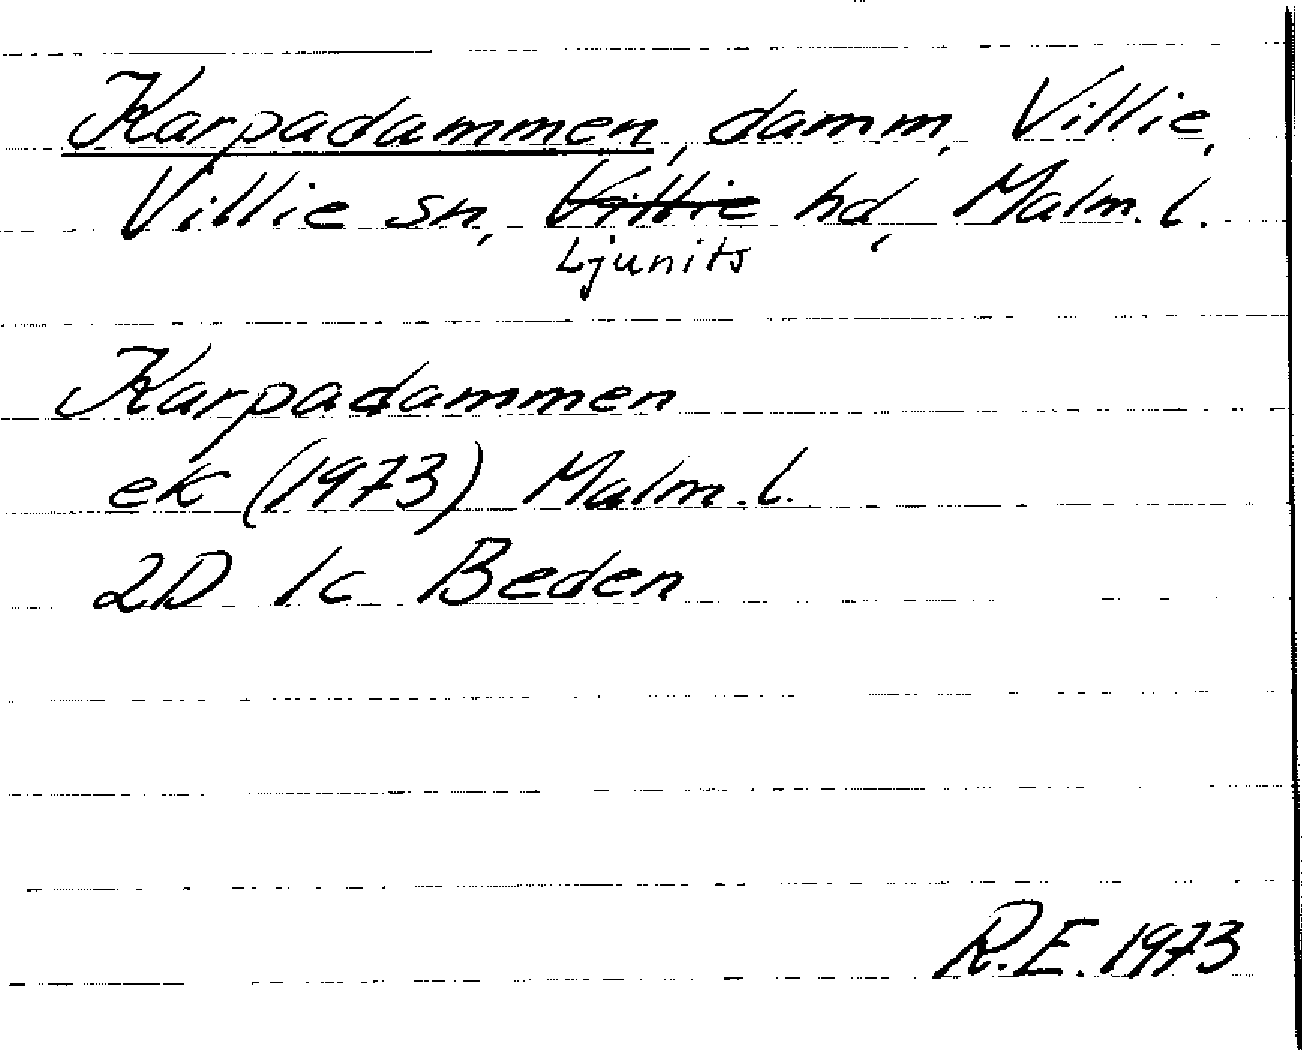 Karpadammen, damm, Villie,
Villie sn, Villie hd, Malm. l.
Ljunits
Karpadammen
ek (1973) Malm. l.
2D 1c Beden
R.E. 1973